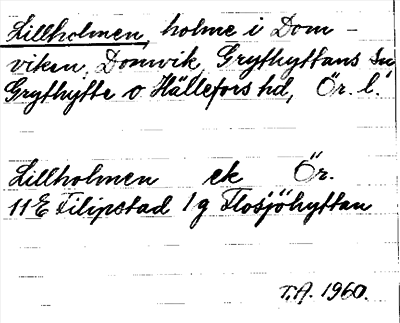 Lillholmen, holme i Dom-
viken, Domvik, Grythyttans sn
Grythytte o Hällefors hd, Ör. l.
Lillholmen ek Ör.
11E Filipstad 1g Flosjöhyttan
T.A. 1960.